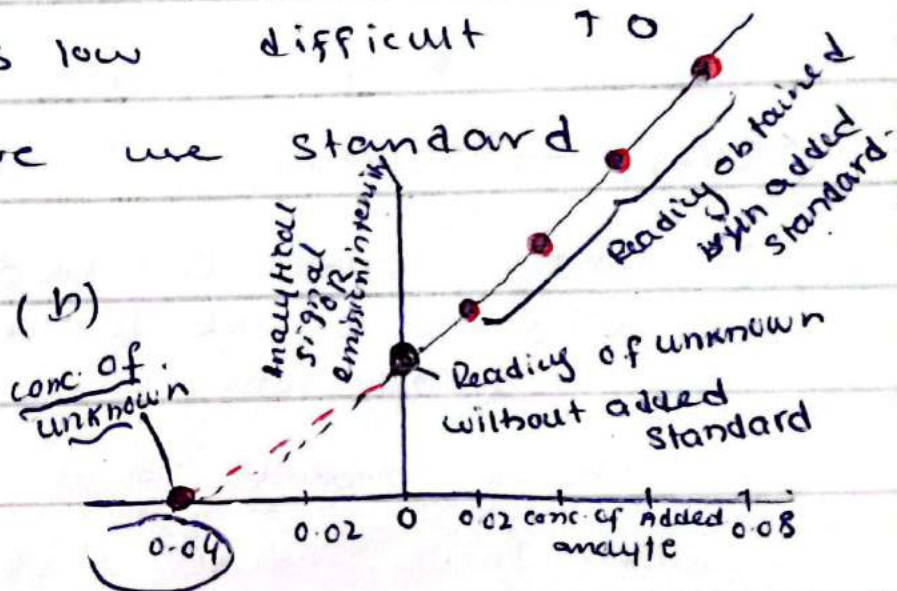 s low difficult TO
we use standard
(b)
conc. of
unknown
Analytical
signal
OR
Reading obtained
with added
standard.
Reading of unknown
without added
standard
0.04 0.02 0 0.02 conc. of Added 0.08
analyte